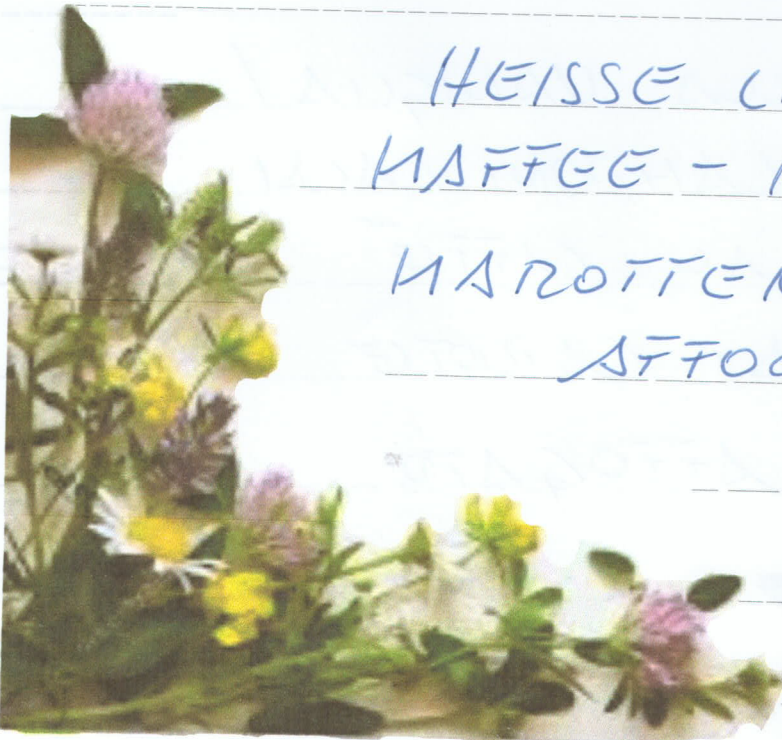 HEISSE
KAFFEE -
KAROTTEN
AFFO